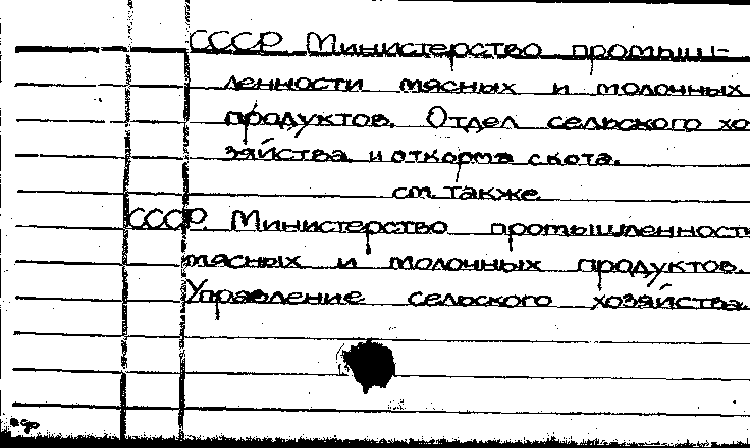 СССР. Министерство промыш-
ленности мясных и молочных
продуктов. Отдел сельского хо
зяйства и откорма скота.
см. также
СССР. Министерство промышленности
мясных и молочных продуктов.
Управление сельского хозяйства